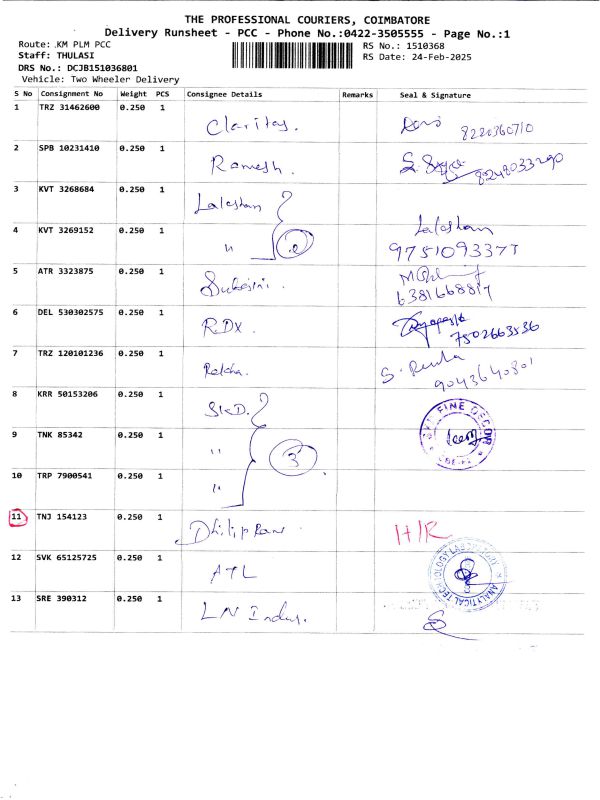 THE PROFESSIONAL COURIERS, COIMBATORE
Delivery Runsheet - PCC - Phone No.:0422-3505555 - Page No.:1
Route: KM PLM PCC RS No.: 1510368
Staff: THULASI RS Date: 24-Feb-2025
DRS No.: DCJB151036801
Vehicle: Two Wheeler Delivery
S No Consignment No Weight PCS Consignee Details Remarks Seal & Signature
1 TRZ 31462600 0.250 1 Claritas. 8220360710
2 SPB 10231410 0.250 1 Ramesh. 8248033290
3 KVT 3268684 0.250 1 Laleshan
4 KVT 3269152 0.250 1 " 2 Laleshan
9751093377
5 ATR 3323875 0.250 1
6381668817
6 DEL 530302575 0.250 1 RDX.
7502663536
7 TRZ 120101236 0.250 1 S.
9043640801
8 KRR 50153206 0.250 1 FINE DECOR
9 TNK 85342 0.250 1 " 3
10 TRP 7900541 0.250 1 "
11 TNJ 154123 0.250 1
12 SVK 65125725 0.250 1 ATL ANALYTICAL TECHNOLOGY LABORATORY
13 SRE 390312 0.250 1 LN Indus.